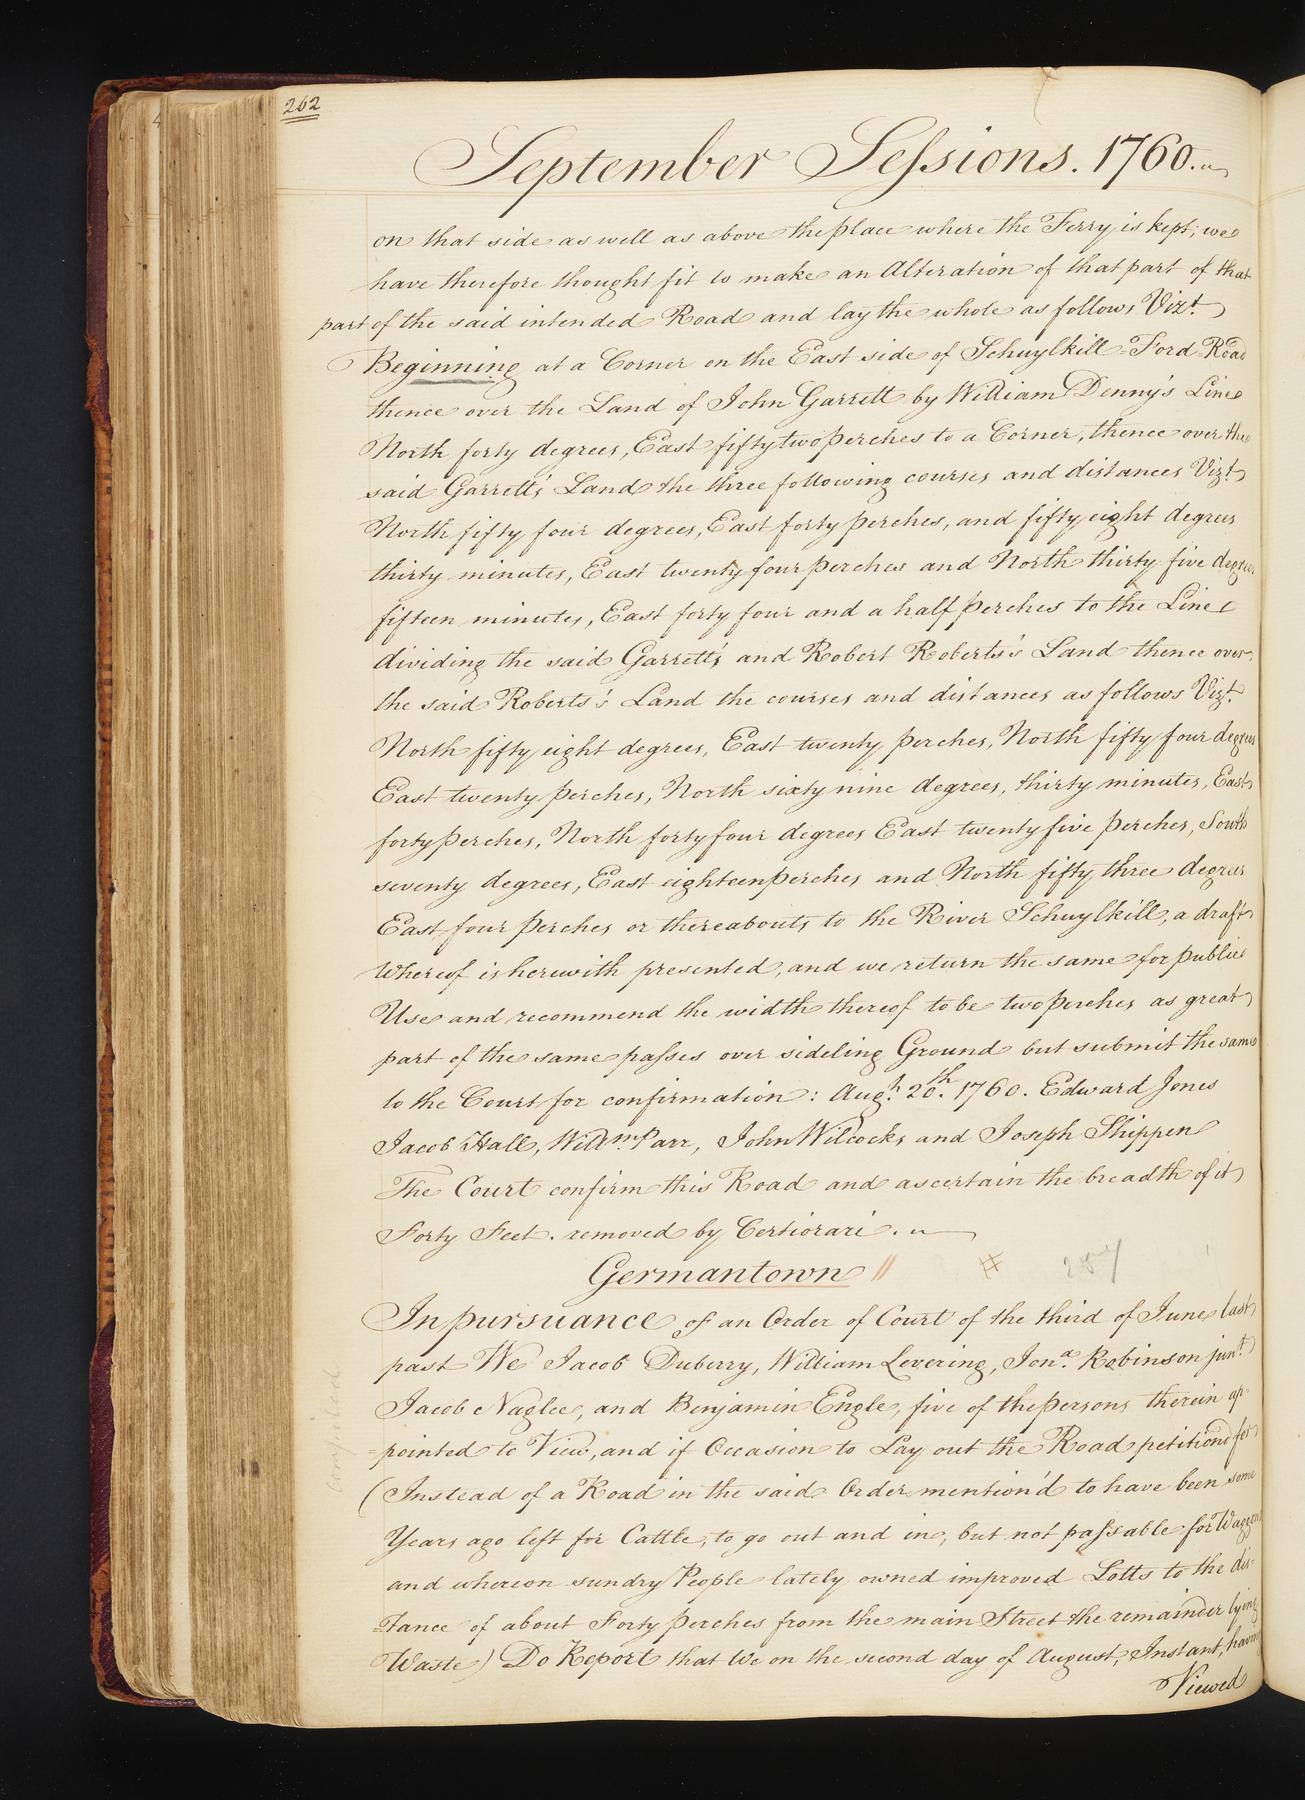 262
September Sessions. 1760.
on that side as well as above the place where the Ferry is kept; we
have therefore thought fit to make an Alteration of that part of that
part of the said intended Road and lay the whole as follows Vizt.
Beginning at a Corner on the East side of Schuylkill-Ford-Road
thence over the Land of John Garrett by William Denny's Line
North forty degrees, East fifty two perches to a Corner, thence over the
said Garrett's Land the three following courses and distances Vizt.
North fifty four degrees, East forty perches, and fifty eight degrees
thirty minutes, East twenty four perches and North thirty five degrees
fifteen minutes, East forty four and a half perches to the Line
dividing the said Garrett's and Robert Roberts's Land thence over
the said Roberts's Land the courses and distances as follows Vizt.
North fifty eight degrees, East twenty perches, North fifty four degrees
East twenty perches, North sixty nine degrees, thirty minutes, East
forty perches, North forty four degrees East twenty five perches, South
seventy degrees, East eighteen perches and North fifty three degrees
East four perches or thereabouts to the River Schuylkill, a draft
whereof is herewith presented, and we return the same for public
Use and recommend the width thereof to be two perches as great
part of the same passes over sideling Ground but submit the same
to the Court for confirmation: Augt. 20th. 1760. Edward Jones
Jacob Hall, Willm. Parr, John Wilcocks and Joseph Shippen
The Court confirm this Road and ascertain the breadth of it
Forty Feet. removed by Certiorari.
Germantown // #
In pursuance of an Order of Court of the third of June last
past We Jacob Duberry, William Levering, Jona. Robinson junr.
Jacob Naglee, and Benjamin Engle, five of the persons therein ap-
=pointed to View, and if Occasion to Lay out the Road petitiond for
(Instead of a Road in the said Order mention'd to have been some
Years ago left for Cattle, to go out and in, but not passable for Waggons
and whereon sundry People lately owned improved Lotts to the dis-
tance of about Forty perches from the main Street the remainder lying
Waste) Do Report that We on the second day of August, Instant, having
Viewed